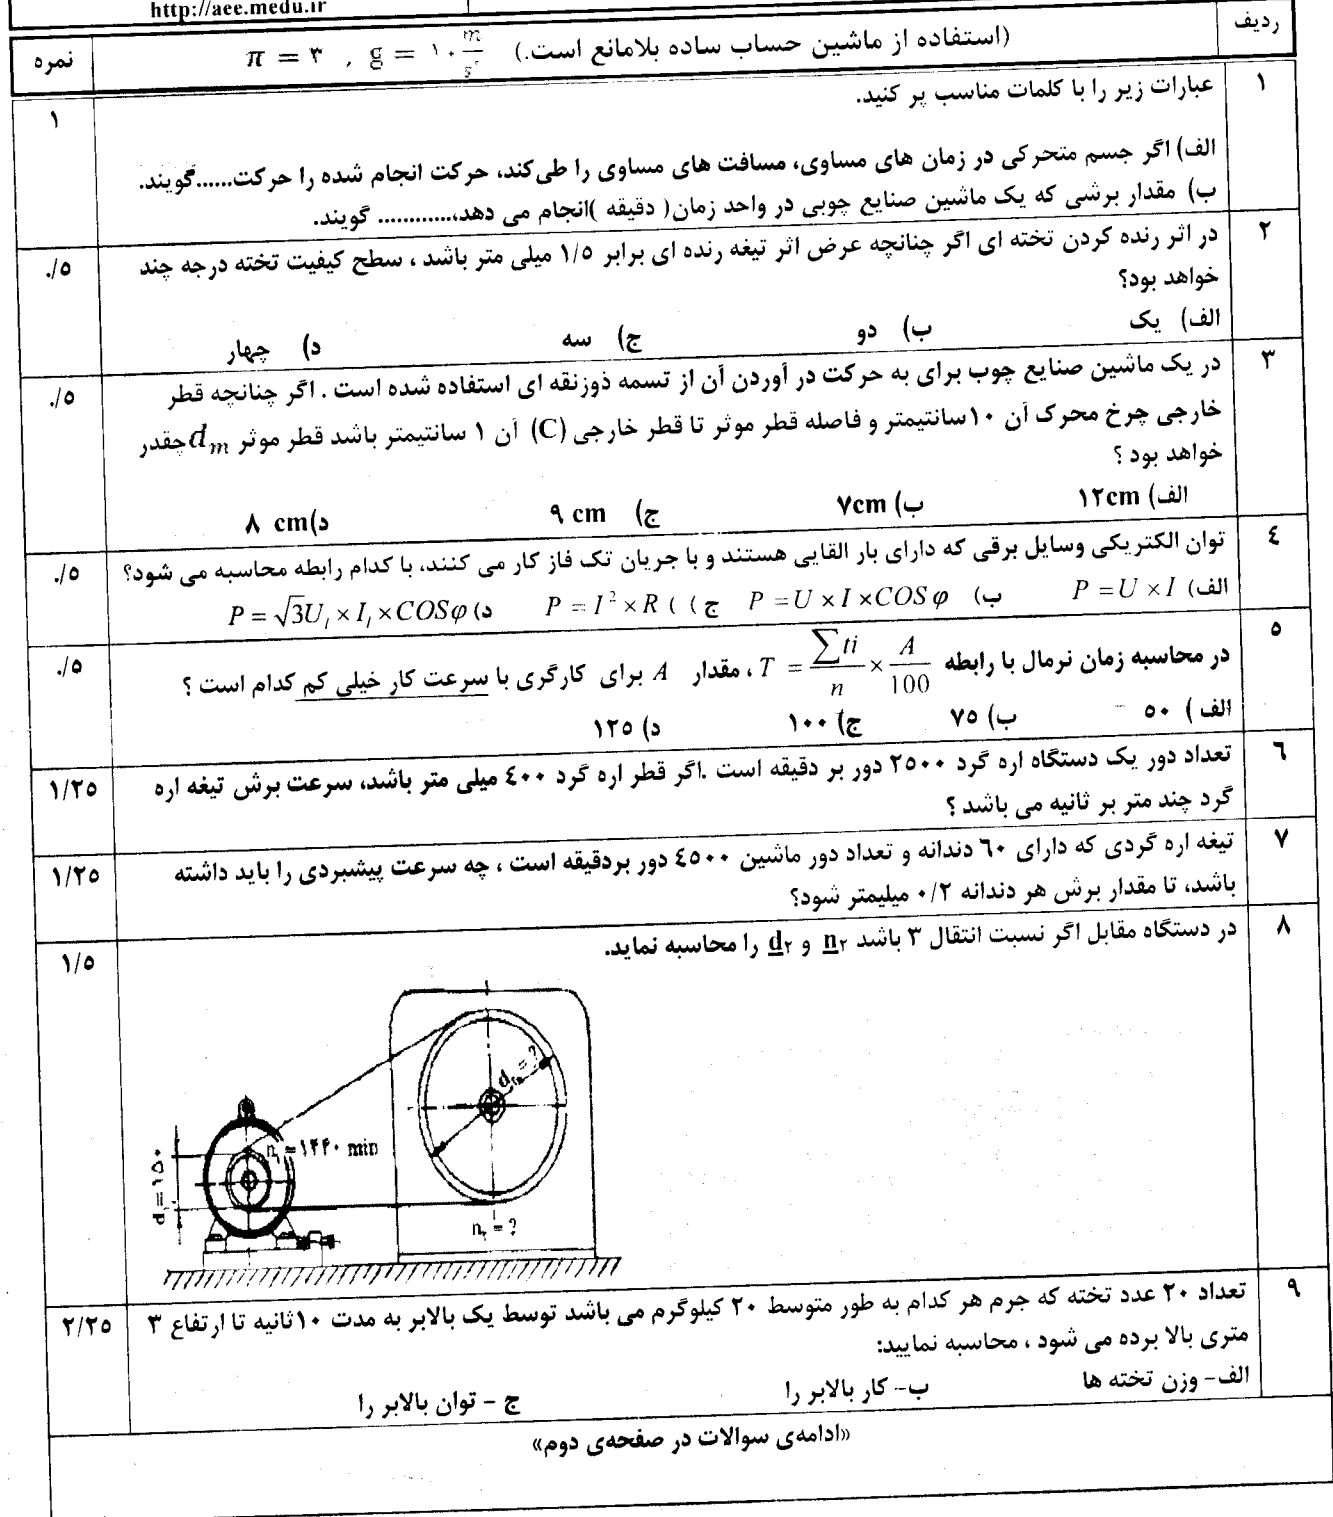 http://aee.medu.ir
ردیف
(استفاده از ماشین حساب ساده بلامانع است.) π = ۳ , g = ۱۰ m/s²
نمره
۱
عبارات زیر را با کلمات مناسب پر کنید.
۱
الف) اگر جسم متحرکی در زمان های مساوی، مسافت های مساوی را طی کند، حرکت انجام شده را حرکت......گویند.
ب) مقدار برشی که یک ماشین صنایع چوبی در واحد زمان( دقیقه )انجام می دهد،............ گویند.
۲
در اثر رنده کردن تخته ای اگر چنانچه عرض اثر تیغه رنده ای برابر ۱/۵ میلی متر باشد ، سطح کیفیت تخته درجه چند
۰/۵
خواهد بود؟
الف) یک ب) دو ج) سه د) چهار
۳
در یک ماشین صنایع چوب برای به حرکت در آوردن آن از تسمه ذوزنقه ای استفاده شده است . اگر چنانچه قطر
۰/۵
خارجی چرخ محرک آن ۱۰سانتیمتر و فاصله قطر موثر تا قطر خارجی (C) آن ۱ سانتیمتر باشد قطر موثر dm چقدر
خواهد بود ؟
الف) ۱۲cm ب) ۷cm ج) ۹ cm د) ۸ cm
٤
توان الکتریکی وسایل برقی که دارای بار القایی هستند و با جریان تک فاز کار می کنند، با کدام رابطه محاسبه می شود؟
۰/۵
الف) P = U × I ب) P = U × I × COS φ ج ) ( P = I² × R د) P = √3U_l × I_l × COSφ
۵
در محاسبه زمان نرمال با رابطه T = ∑ti/n × A/100 ، مقدار A برای کارگری با سرعت کار خیلی کم کدام است ؟
۰/۵
الف ) ۵۰ ب) ۷۵ ج) ۱۰۰ د) ۱۲۵
٦
تعداد دور یک دستگاه اره گرد ۲۵۰۰ دور بر دقیقه است .اگر قطر اره گرد ٤۰۰ میلی متر باشد، سرعت برش تیغه اره
۱/۲۵
گرد چند متر بر ثانیه می باشد ؟
۷
تیغه اره گردی که دارای ٦۰ دندانه و تعداد دور ماشین ٤۵۰۰ دور بردقیقه است ، چه سرعت پیشبردی را باید داشته
۱/۲۵
باشد، تا مقدار برش هر دندانه ۰/۲ میلیمتر شود؟
۸
در دستگاه مقابل اگر نسبت انتقال ۳ باشد n۲ و d۲ را محاسبه نماید.
۱/۵
d۲ = ?
n۱ = ۱۴۴۰ min
d۱ = ۱۵۰
n۲ = ?
۹
تعداد ۲۰ عدد تخته که جرم هر کدام به طور متوسط ۲۰ کیلوگرم می باشد توسط یک بالابر به مدت ۱۰ثانیه تا ارتفاع ۳
۲/۲۵
متری بالا برده می شود ، محاسبه نمایید:
الف- وزن تخته ها ب- کار بالابر را ج - توان بالابر را
«ادامه‌ی سوالات در صفحه‌ی دوم»